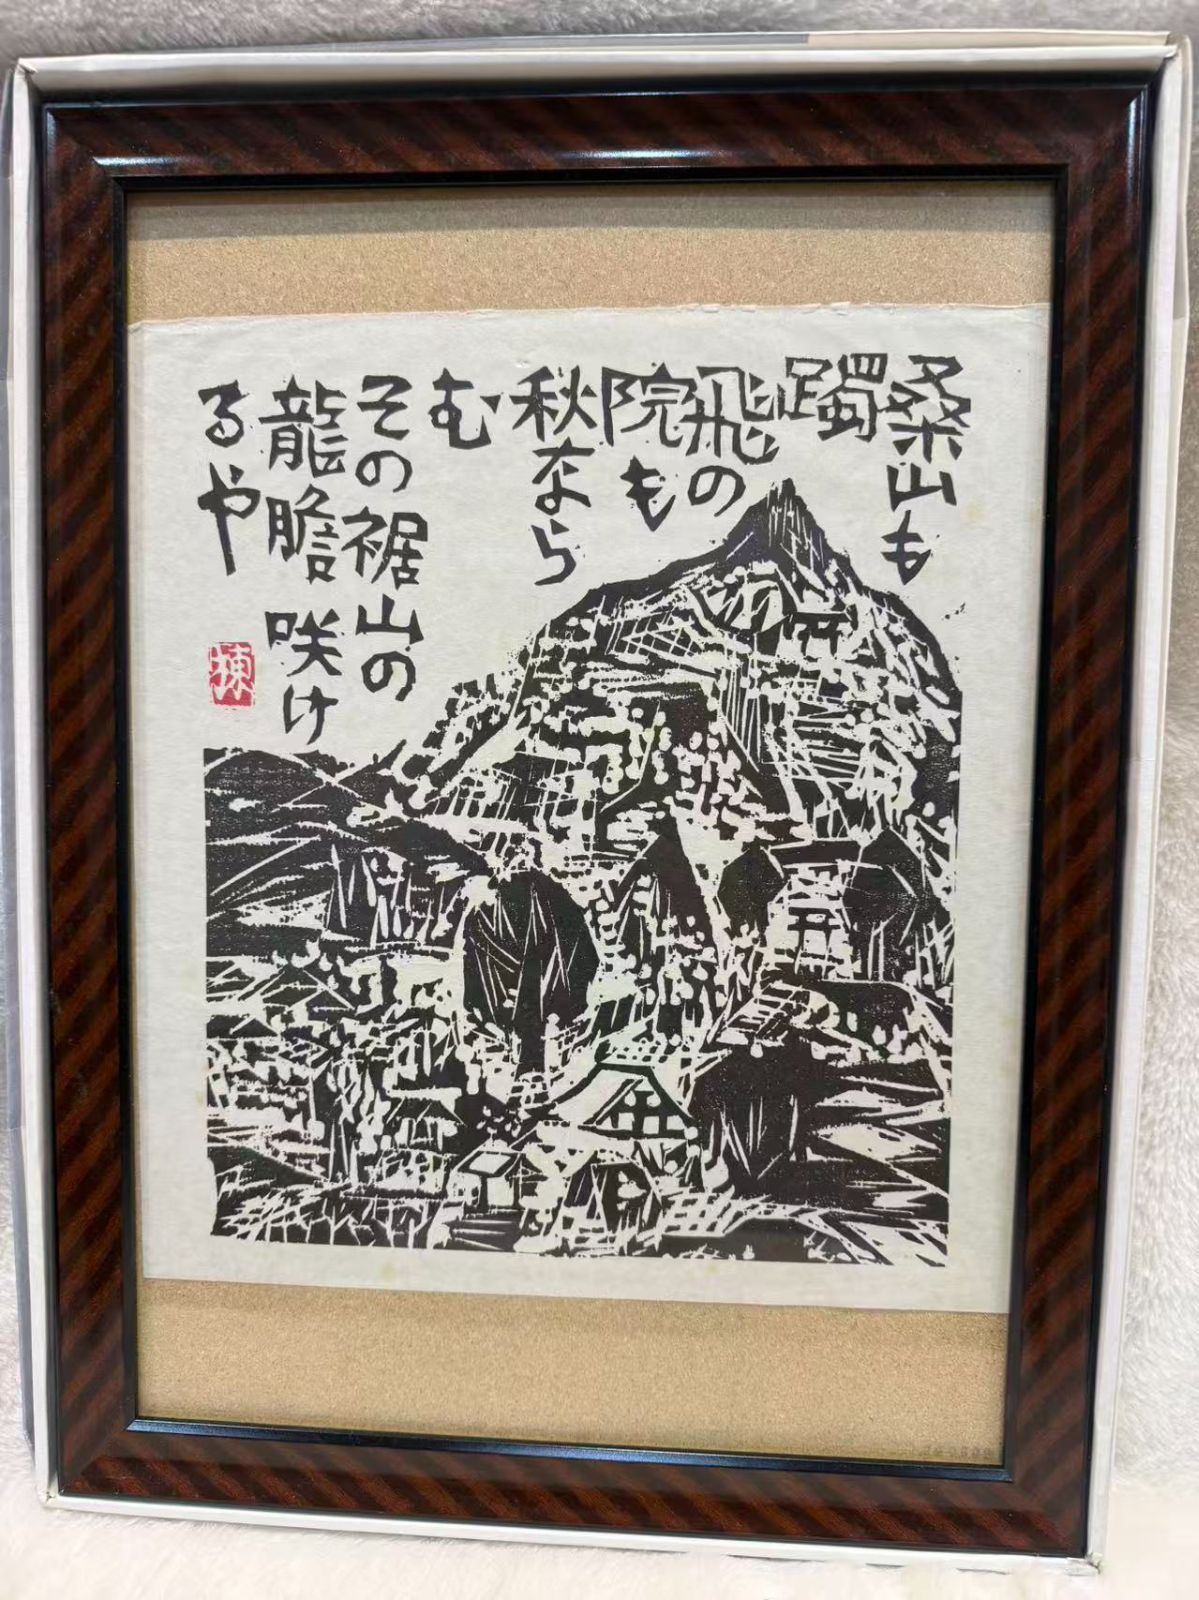 桑山も
躅
飛の
院も
秋なら
む
その裾山の
龍膽咲け
るや
棟